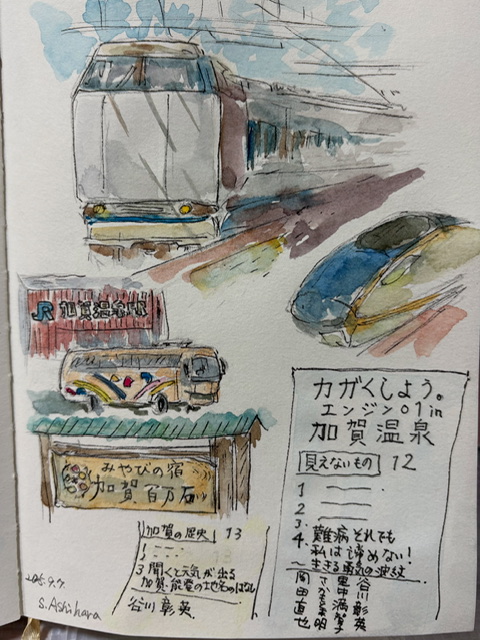 JR 加賀温泉駅
みやびの宿
加賀百万石
加賀の歴史 13
1
3 聞くと元気が出る
加賀・能登の地名のはなし
谷川彰英
カガくしよう。
エンジン01 in
加賀温泉
見えないもの 12
1
2
3.
4. 難病 それでも
私は諦めない!
~生きる勇気の波紋
谷川彰英
里中満智子
岡田直也
S. Ashihara